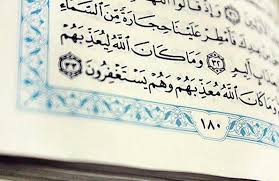 وَإِذْ قَالُوا۟
فَأَمْطِرْ عَلَيْنَا حِجَارَةً مِّنَ ٱلسَّمَآءِ
أَلِيمٍ ٣٢ وَمَا كَانَ ٱللَّهُ لِيُعَذِّبَهُمْ
وَمَا كَانَ ٱللَّهُ مُعَذِّبَهُمْ وَهُمْ يَسْتَغْفِرُونَ ٣٣
١٨٠